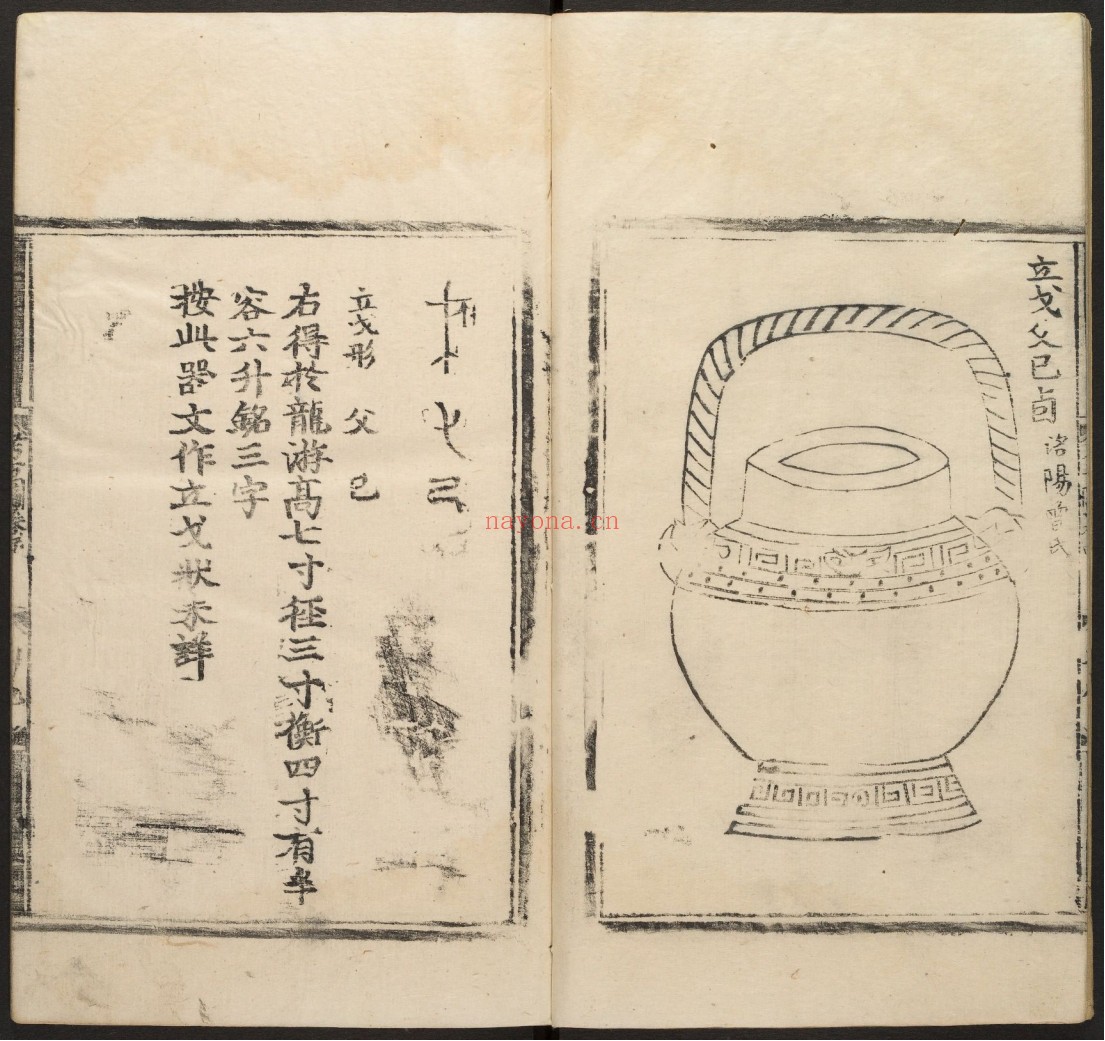 立戈父已卣 洛陽曾氏
立戈形 父 已
右得於龍游高七寸徑三寸衡四寸有半
容六升銘三字
按此器文作立戈狀未詳
nayona.cn